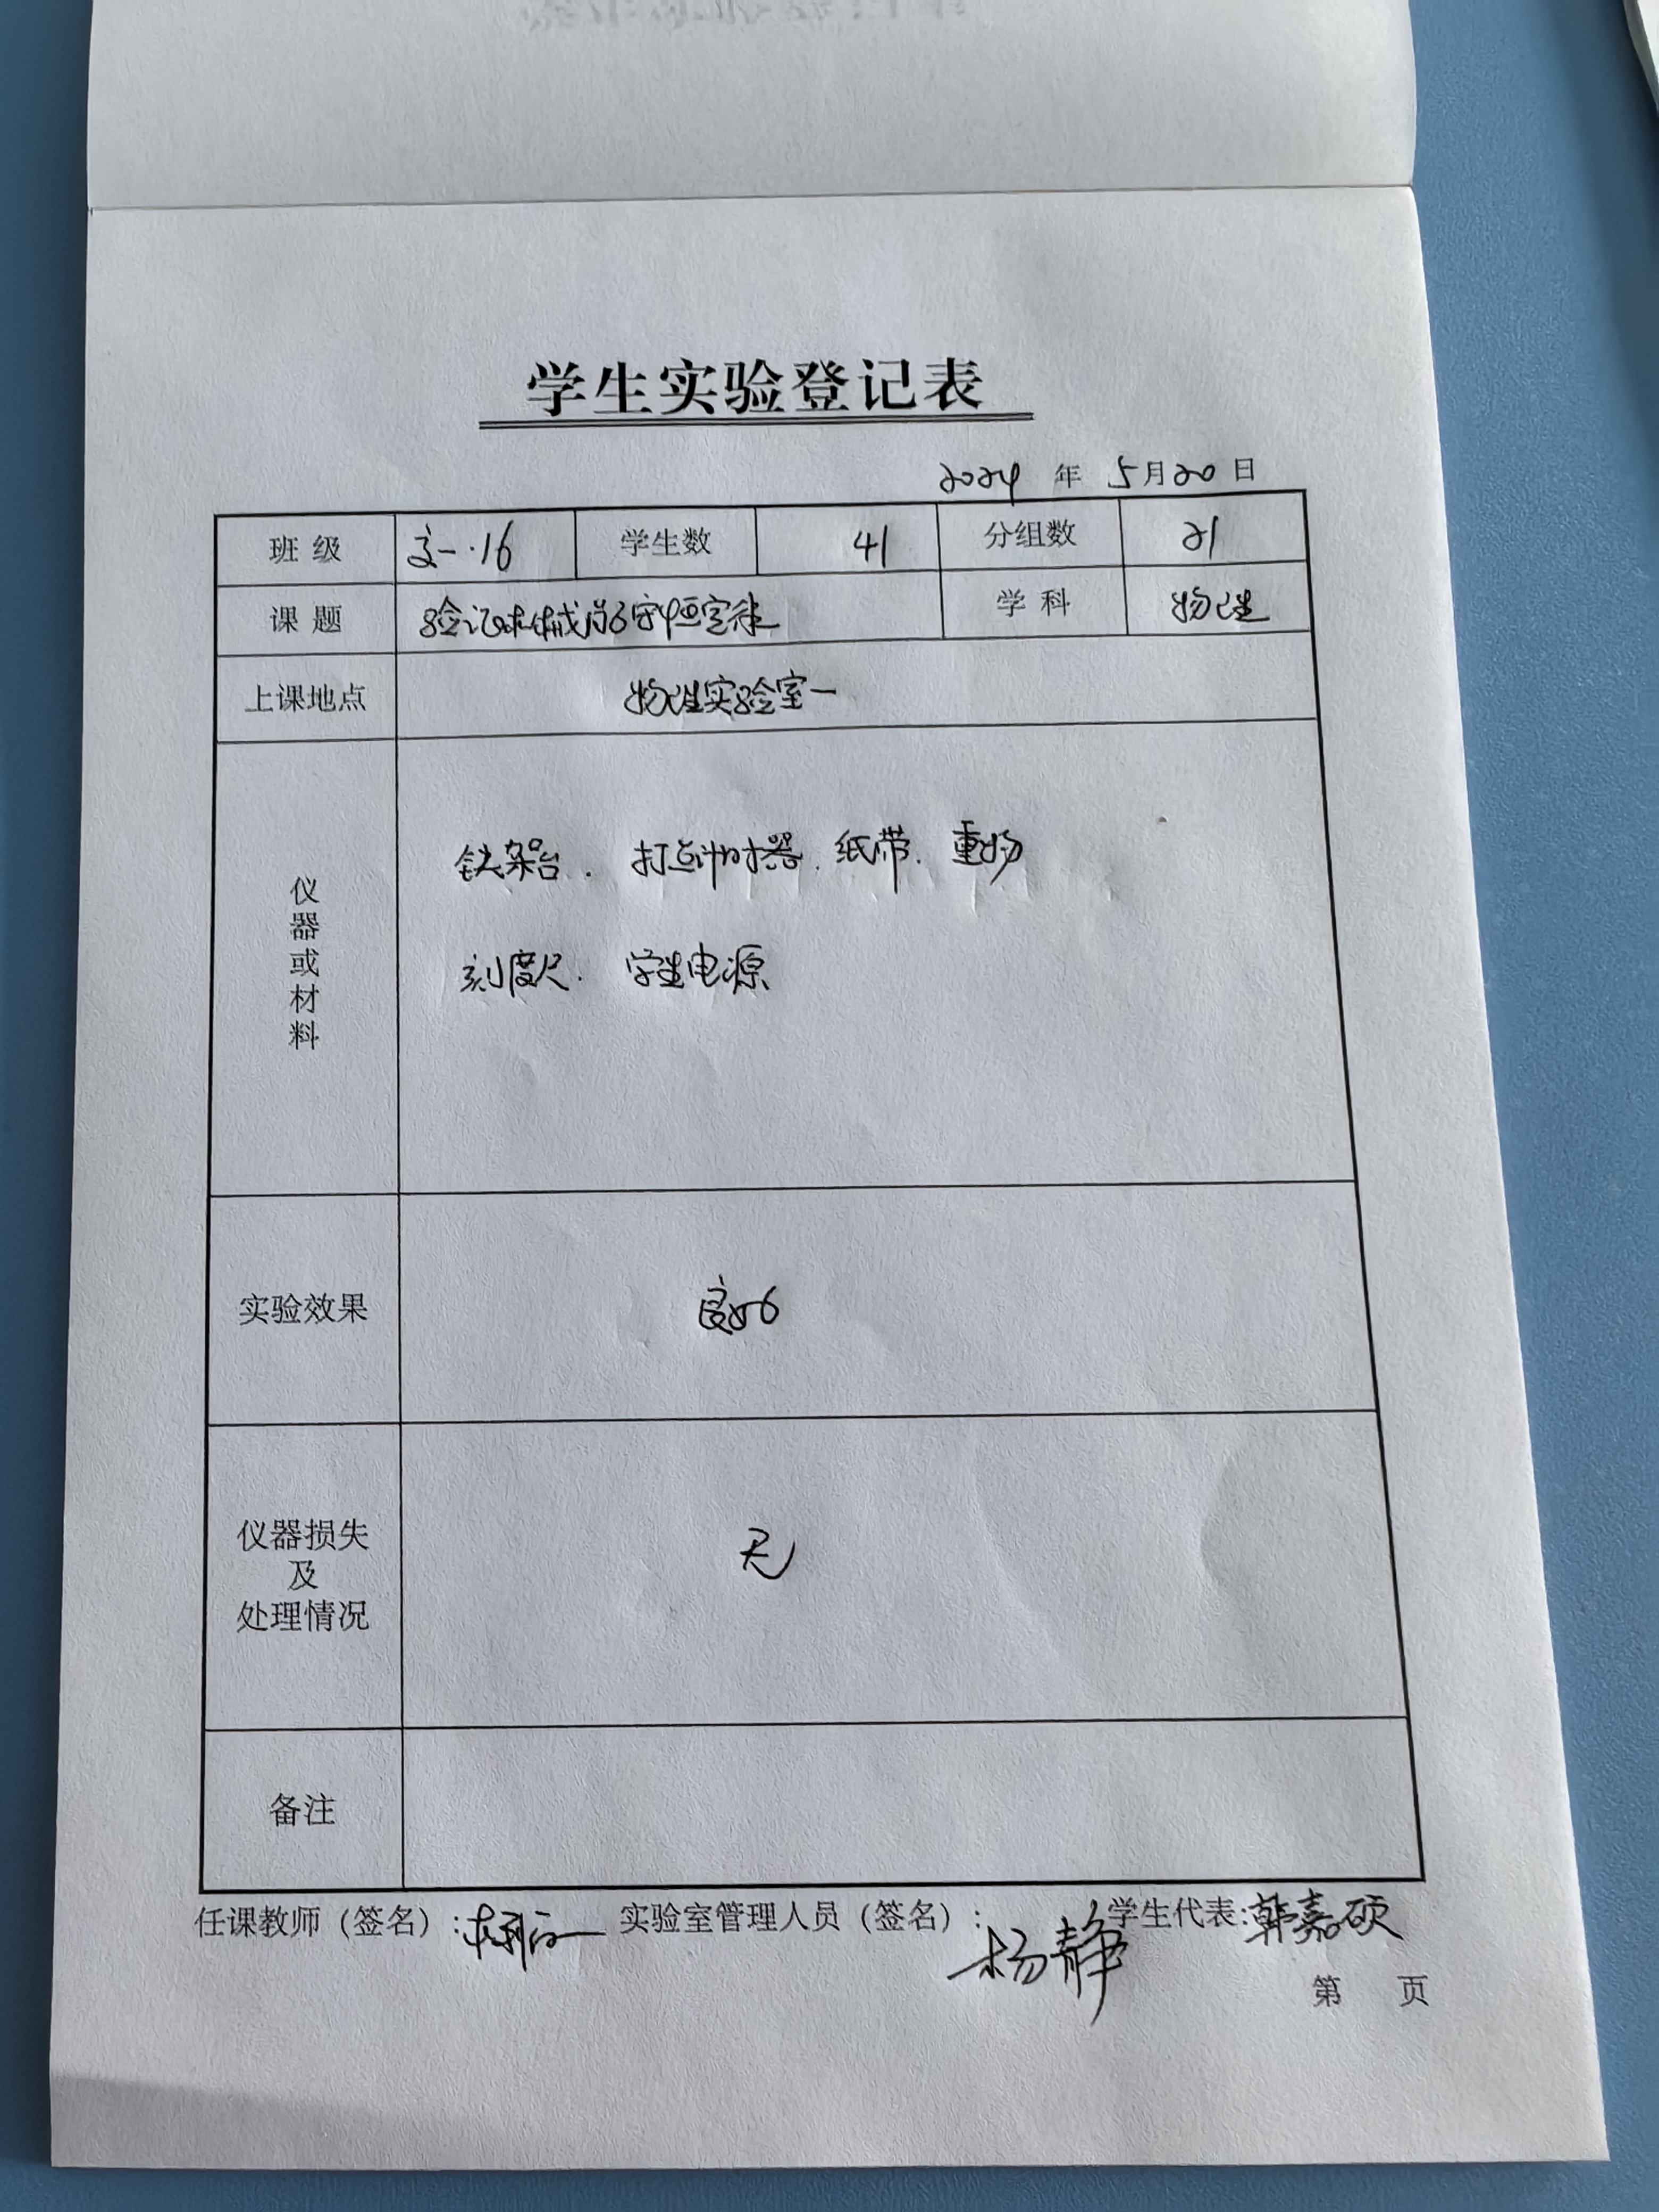 学生实验登记表
2024 年 5月20日
班级 高一.16 学生数 41 分组数 21
课题 验证机械能守恒定律 学科 物理
上课地点 物理实验室一
仪器或材料
铁架台. 打点计时器. 纸带. 重物
刻度尺. 学生电源
实验效果 良好
仪器损失
及
处理情况
无
备注
任课教师（签名）: 实验室管理人员（签名）: 杨静 学生代表: 韩嘉硕
第 页